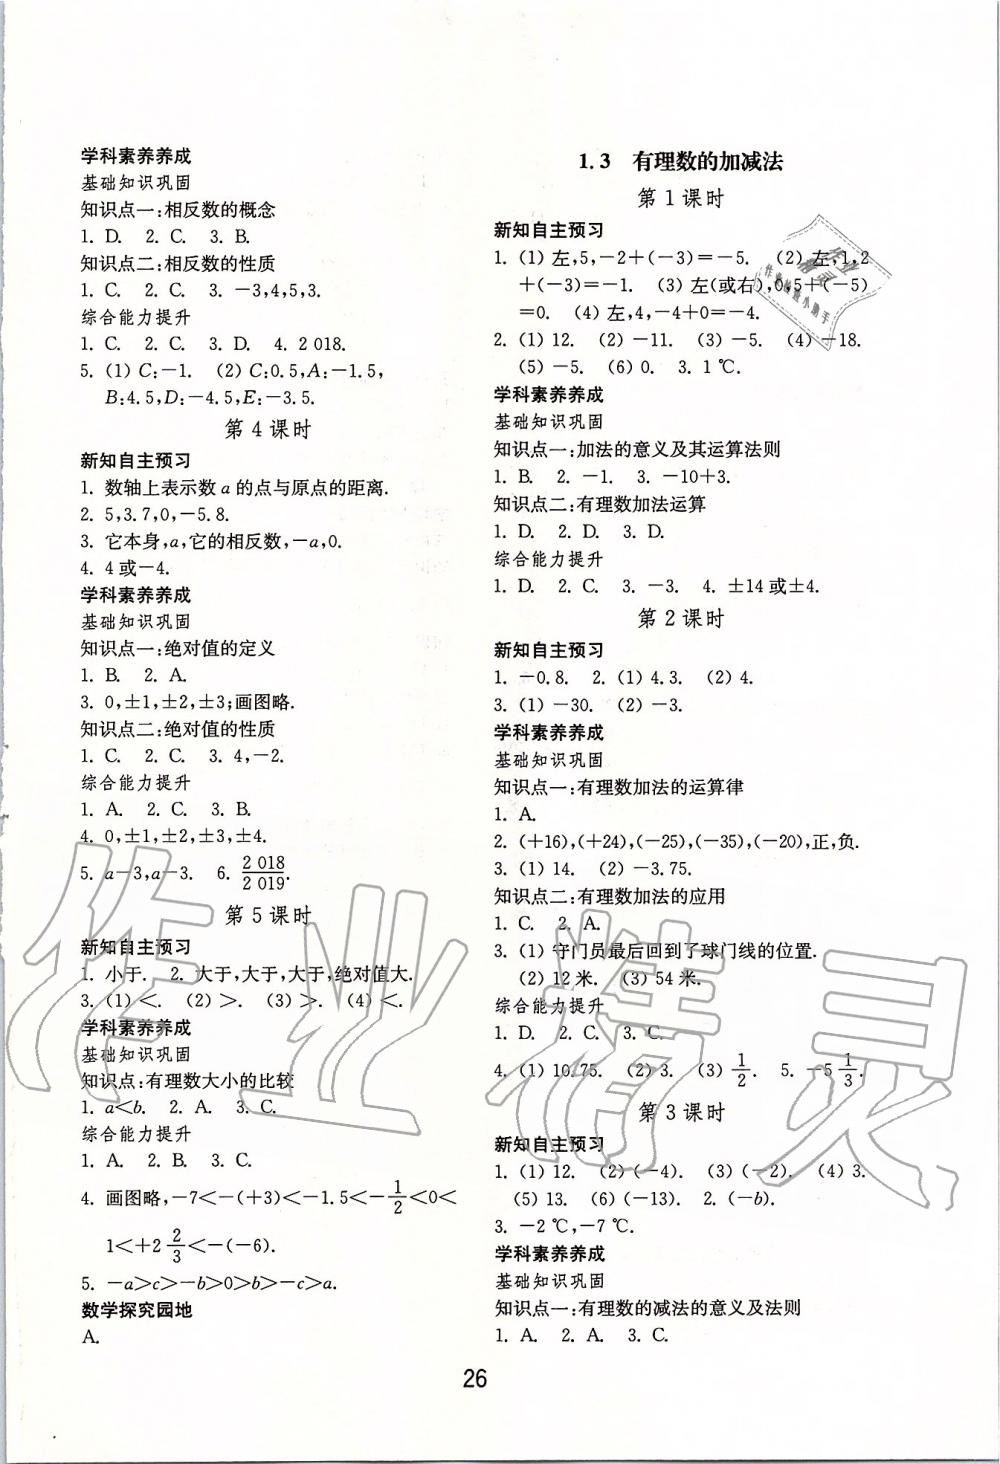 学科素养养成
基础知识巩固
知识点一:相反数的概念
1. D. 2. C. 3. B.
知识点二:相反数的性质
1. C. 2. C. 3. －3,4,5,3.
综合能力提升
1. C. 2. C. 3. D. 4. 2 018.
5. (1) C:－1. (2) C:0.5,A:－1.5,
B:4.5,D:－4.5,E:－3.5.
第 4 课时
新知自主预习
1. 数轴上表示数 a 的点与原点的距离.
2. 5,3.7,0,－5.8.
3. 它本身,a,它的相反数,－a,0.
4. 4 或－4.
学科素养养成
基础知识巩固
知识点一:绝对值的定义
1. B. 2. A.
3. 0,±1,±2,±3;画图略.
知识点二:绝对值的性质
1. C. 2. C. 3. 4,－2.
综合能力提升
1. A. 2. C. 3. B.
4. 0,±1,±2,±3,±4.
5. a－3,a－3. 6. 2 018/2 019.
第 5 课时
新知自主预习
1. 小于. 2. 大于,大于,大于,绝对值大.
3. (1)＜. (2)＞. (3)＞. (4)＜.
学科素养养成
基础知识巩固
知识点:有理数大小的比较
1. a＜b. 2. A. 3. C.
综合能力提升
1. A. 2. B. 3. C.
4. 画图略,－7＜－(＋3)＜－1.5＜－1/2＜0＜
1＜＋2 2/3＜－(－6).
5. －a＞c＞－b＞0＞b＞－c＞a.
数学探究园地
A.
1.3 有理数的加减法
第 1 课时
新知自主预习
1. (1) 左,5,－2＋(－3)＝－5. (2) 左,1,2
＋(－3)＝－1. (3) 左(或右),0,5＋(－5)
＝0. (4) 左,4,－4＋0＝－4.
2. (1) 12. (2) －11. (3) －5. (4) －18.
(5) －5. (6) 0. 3. 1 ℃.
学科素养养成
基础知识巩固
知识点一:加法的意义及其运算法则
1. B. 2. －1. 3. －10＋3.
知识点二:有理数加法运算
1. D. 2. D. 3. D.
综合能力提升
1. D. 2. C. 3. －3. 4. ±14 或±4.
第 2 课时
新知自主预习
1. －0.8. 2. (1) 4.3. (2) 4.
3. (1) －30. (2) －3.
学科素养养成
基础知识巩固
知识点一:有理数加法的运算律
1. A.
2. (＋16),(＋24),(－25),(－35),(－20),正,负.
3. (1) 14. (2) －3.75.
知识点二:有理数加法的应用
1. C. 2. A.
3. (1) 守门员最后回到了球门线的位置.
(2) 12 米. (3) 54 米.
综合能力提升
1. D. 2. C. 3. C.
4. (1) 10.75. (2) 3. (3) 1/2. 5. －5 1/3.
第 3 课时
新知自主预习
1. (1) 12. (2) (－4). (3) (－2). (4) 3.
(5) 13. (6) (－13). 2. (－b).
3. －2 ℃,－7 ℃.
学科素养养成
基础知识巩固
知识点一:有理数的减法的意义及法则
1. A. 2. A. 3. C.
26
作业精灵
作业
精灵
作业检查小助手